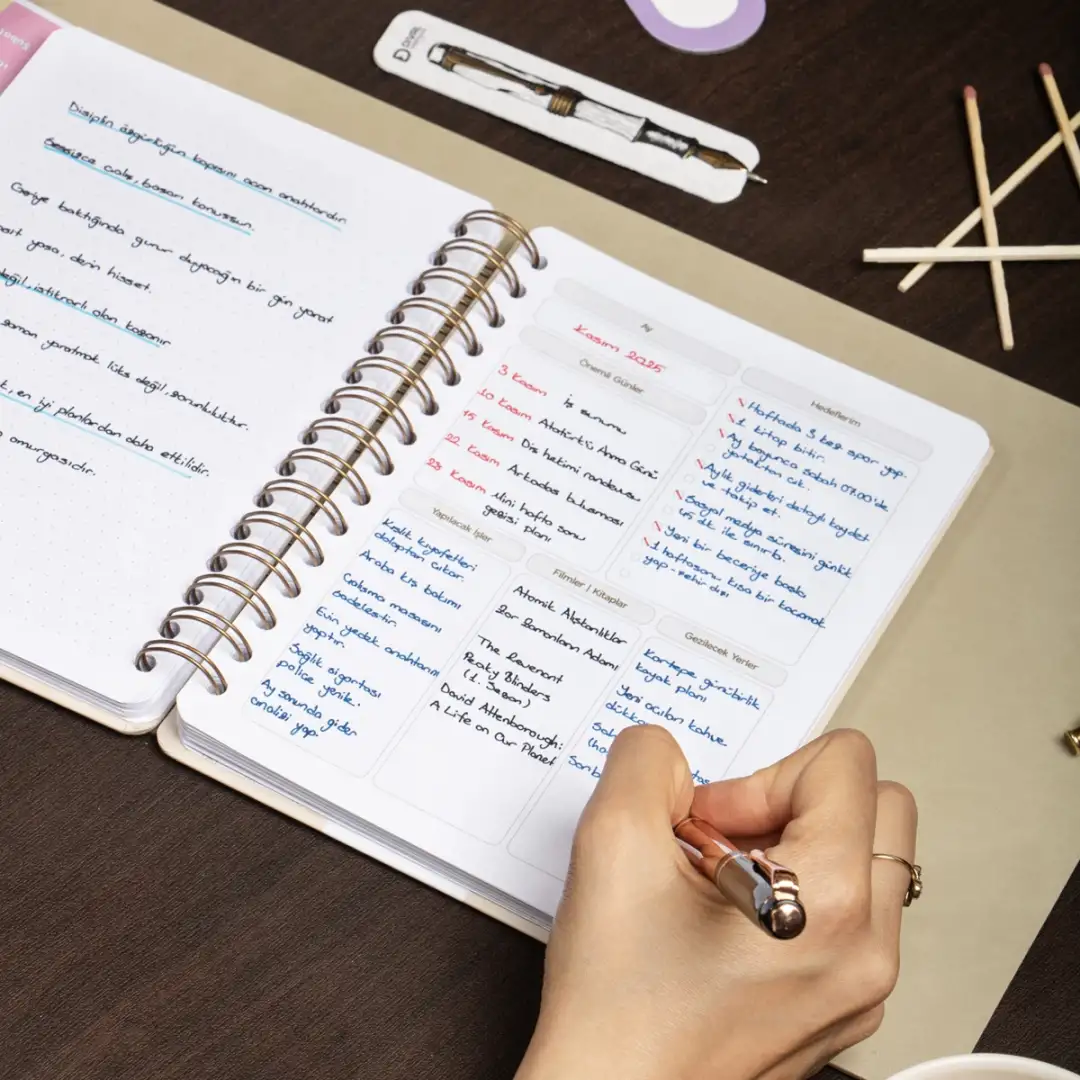 Disiplin özgürlüğün kapısını açan anahtardır.
Sessizce çalış, başarı konuşsun.
Geriye baktığında gurur duyacağın bir gün yarat
yaşa, derin hisset.
değil, istikrarlı olan kazanır
zaman yaratmak lüks değil, sorumluluktur.
en iyi planlardan daha etkilidir.
omurgasıdır.
Ay
Kasım 2025
Önemli Günler
3 Kasım İş sunumu
10 Kasım Atatürk'ü Anma Günü
15 Kasım Diş hekimi randevusu
22 Kasım Arkadaş buluşması
23 Kasım Mini hafta sonu
gezisi planı
Hedeflerim
Haftada 3 kez spor yap.
1 kitap bitir.
Ay boyunca sabah 07.00'de
yataktan çık.
Aylık giderleri detaylı kaydet
ve takip et.
Sosyal medya süresini günlük
45 dk. ile sınırla.
Yeni bir beceriye başla
1 haftasonu kısa bir kaçamak
yap - şehir dışı
Yapılacak İşler
Kışlık kıyafetleri
dolaptan çıkar.
Araba kış bakımı
Çalışma masasını
sadeleştir.
Evin yedek anahtarını
yaptır.
Sağlık sigortası
poliçe yenile.
Ay sonunda gider
analizi yap.
Filmler | Kitaplar
Atomik Alışkanlıklar
Zor Zamanların Adamı
The Revenant
Peaky Blinders
(1. Sezon)
David Attenborough:
A Life on Our Planet
Gezilecek Yerler
Kartepe günübirlik
kayak planı
Yeni açılan kahve